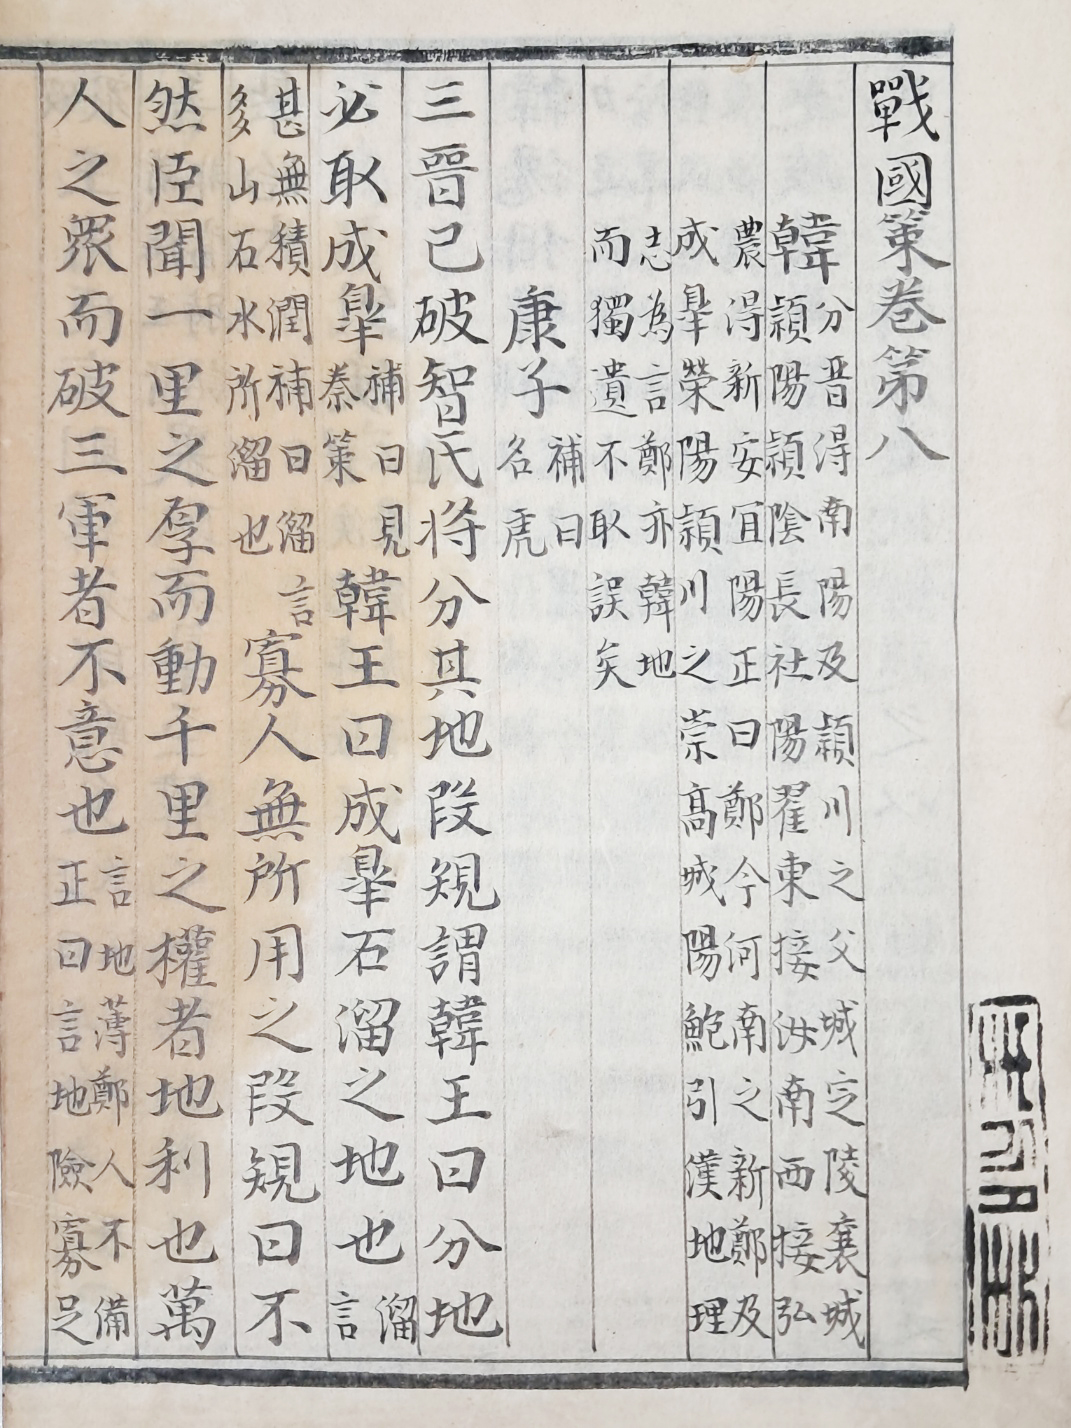 戰國策卷第八
韓
分晋得南陽及穎川之父城定陵襄城
穎陽穎陰長社陽翟東接汝南西接弘
農得新安宜陽正曰鄭今河南之新鄭及
成臯榮陽穎川之崇髙城陽鮑引漢地理
志為言鄭亦韓地
而獨遺不取誤矣
康子
補曰
名虎
三晉已破智氏将分其地段規謂韓王曰分地
必取成臯
補曰見
秦策
韓王曰成臯石溜之地也
溜
言
甚無積潤補曰溜言
多山石水所溜也
寡人無所用之段規曰不
然臣聞一里之厚而動千里之權者地利也萬
人之衆而破三軍者不意也
言地薄鄭人不備
正曰言地險寡足